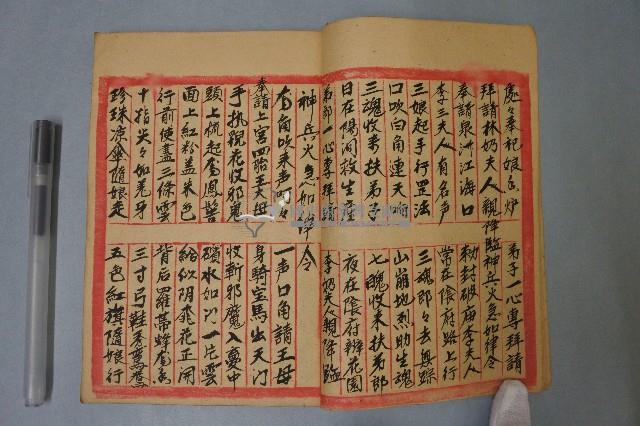 處々奉祀娘香炉 弟子一心專拜請
拜請林奶夫人親降臨神兵火急如律令
奉請泉洲江海口 勅封破廟李夫人
李三夫人有名声 常在陰府路上行
三娘起手行罡法 三魂郎々去無踪
口吹白角連天响 山崩地烈助生魂
三魂收來扶弟子 七魄收來扶弟郎
日在陽間救生產 夜在陰府辦花園
弟郎一心專拜請 李奶夫人親降臨
神兵火急如律令
角吹來声叮々 一声口角請王母
奉請上宮四胎王夫母 身騎宝馬出天门
手执花收邪鬼 收斬邪魔入夢中
頭上梳起鳳髻 水如以一片雲
面上紅粉盖朱色 花正開
行前使盖三條雲 背后羅幕蜂
十指尖々如羌牙 三寸弓鞋秀鴛鴦
珍珠凉傘隨娘走 五色紅旗隨娘行